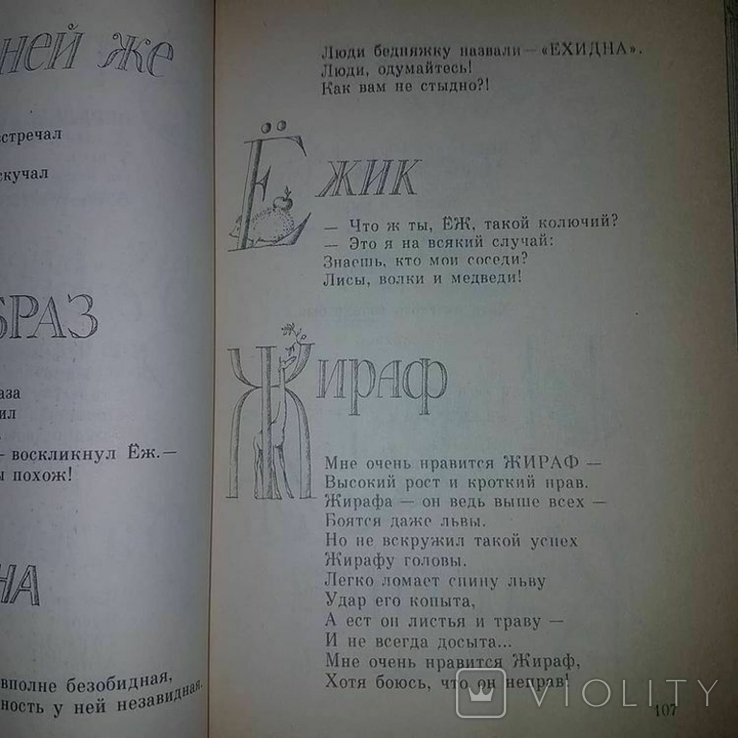 ней же
встречал
скучал
БРАЗ
аза
ил
— воскликнул Ёж.—
ы похож!
НА
вполне безобидная,
ность у ней незавидная.
Люди бедняжку назвали — «ЕХИДНА».
Люди, одумайтесь!
Как вам не стыдно?!
Ёжик
— Что ж ты, ЁЖ, такой колючий?
— Это я на всякий случай:
Знаешь, кто мои соседи?
Лисы, волки и медведи!
Жираф
Мне очень нравится ЖИРАФ —
Высокий рост и кроткий нрав.
Жирафа — он ведь выше всех —
Боятся даже львы.
Но не вскружил такой успех
Жирафу головы.
Легко ломает спину льву
Удар его копыта,
А ест он листья и траву —
И не всегда досыта...
Мне очень нравится Жираф,
Хотя боюсь, что он неправ!
107
VIOLITY